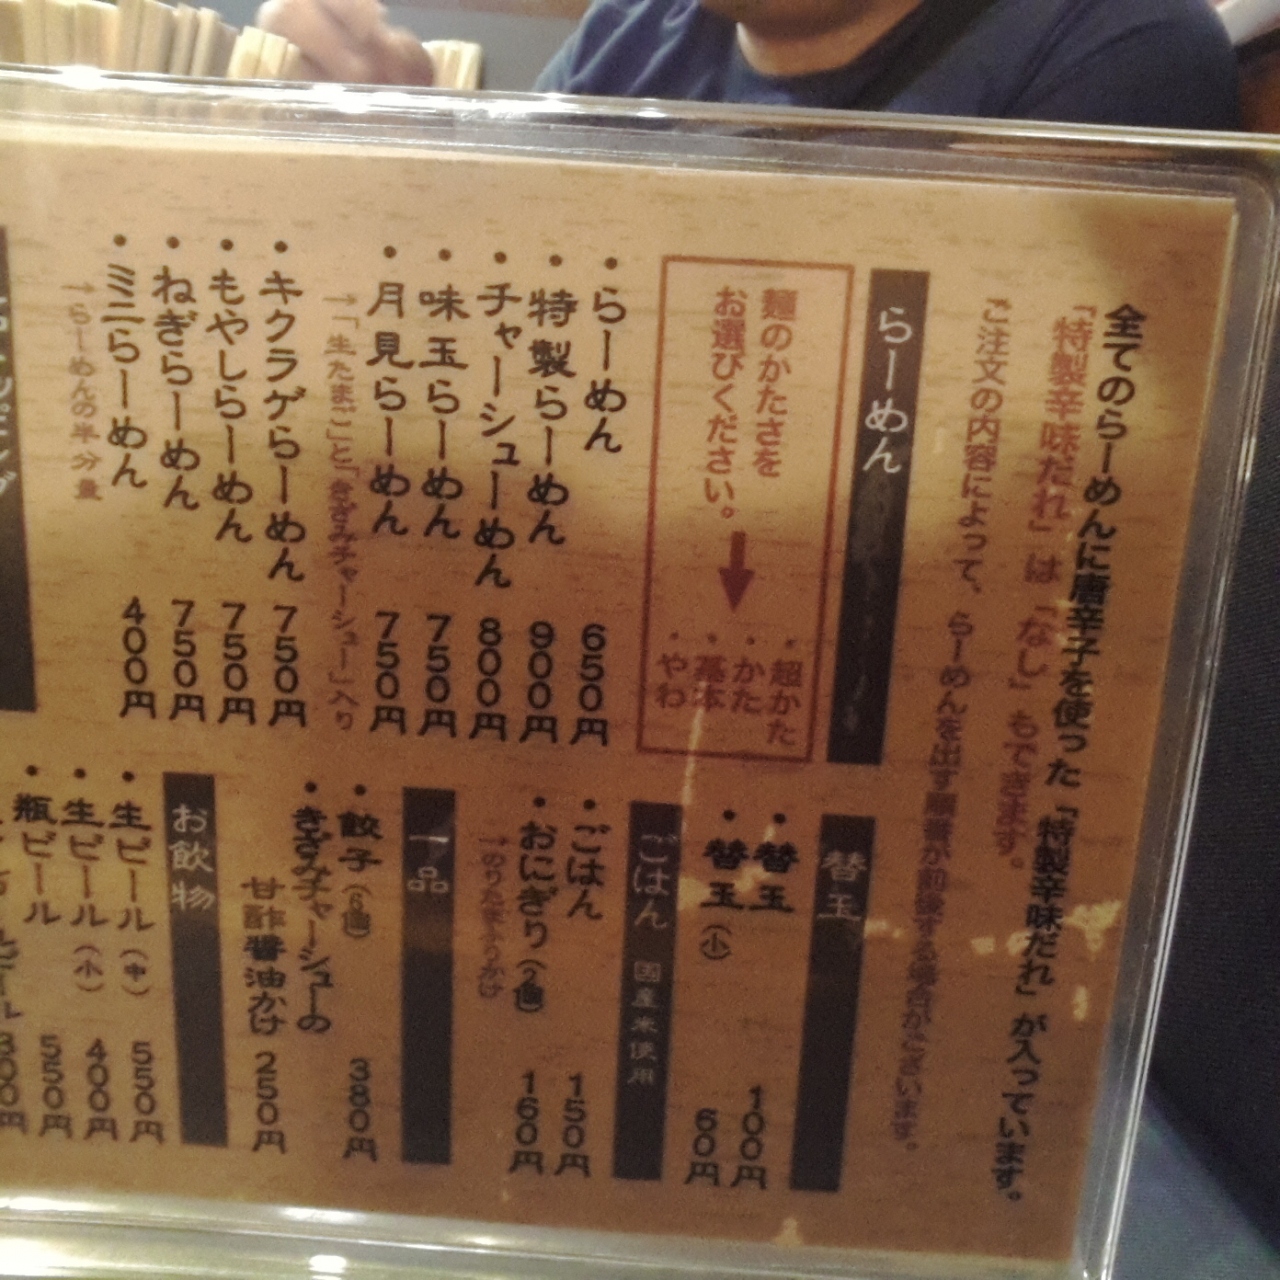 全てのらーめんに唐辛子を使った「特製辛味だれ」が入っています。
「特製辛味だれ」は「なし」もできます。
ご注文の内容によって、らーめんを出す順番が前後する場合がございます。
らーめん
麺のかたさを
お選びください。→
・超かた
・かた
・基本
・やわ
・らーめん 650円
・特製らーめん 900円
・チャーシューめん 800円
・味玉らーめん 750円
・月見らーめん 750円
→「生たまご」と「きざみチャーシュー」入り
・キクラゲらーめん 750円
・もやしらーめん 750円
・ねぎらーめん 750円
・ミニらーめん 400円
→らーめんの半分量
替玉
・替玉 100円
・替玉(小) 60円
ごはん 国産米使用
・ごはん 150円
・おにぎり(2個) 160円
→のりたまふりかけ
一品
・餃子(6個) 380円
・きざみチャーシューの
甘酢醤油かけ 250円
お飲物
・生ビール(中) 550円
・生ビール(小) 400円
・瓶ビール 550円
300円